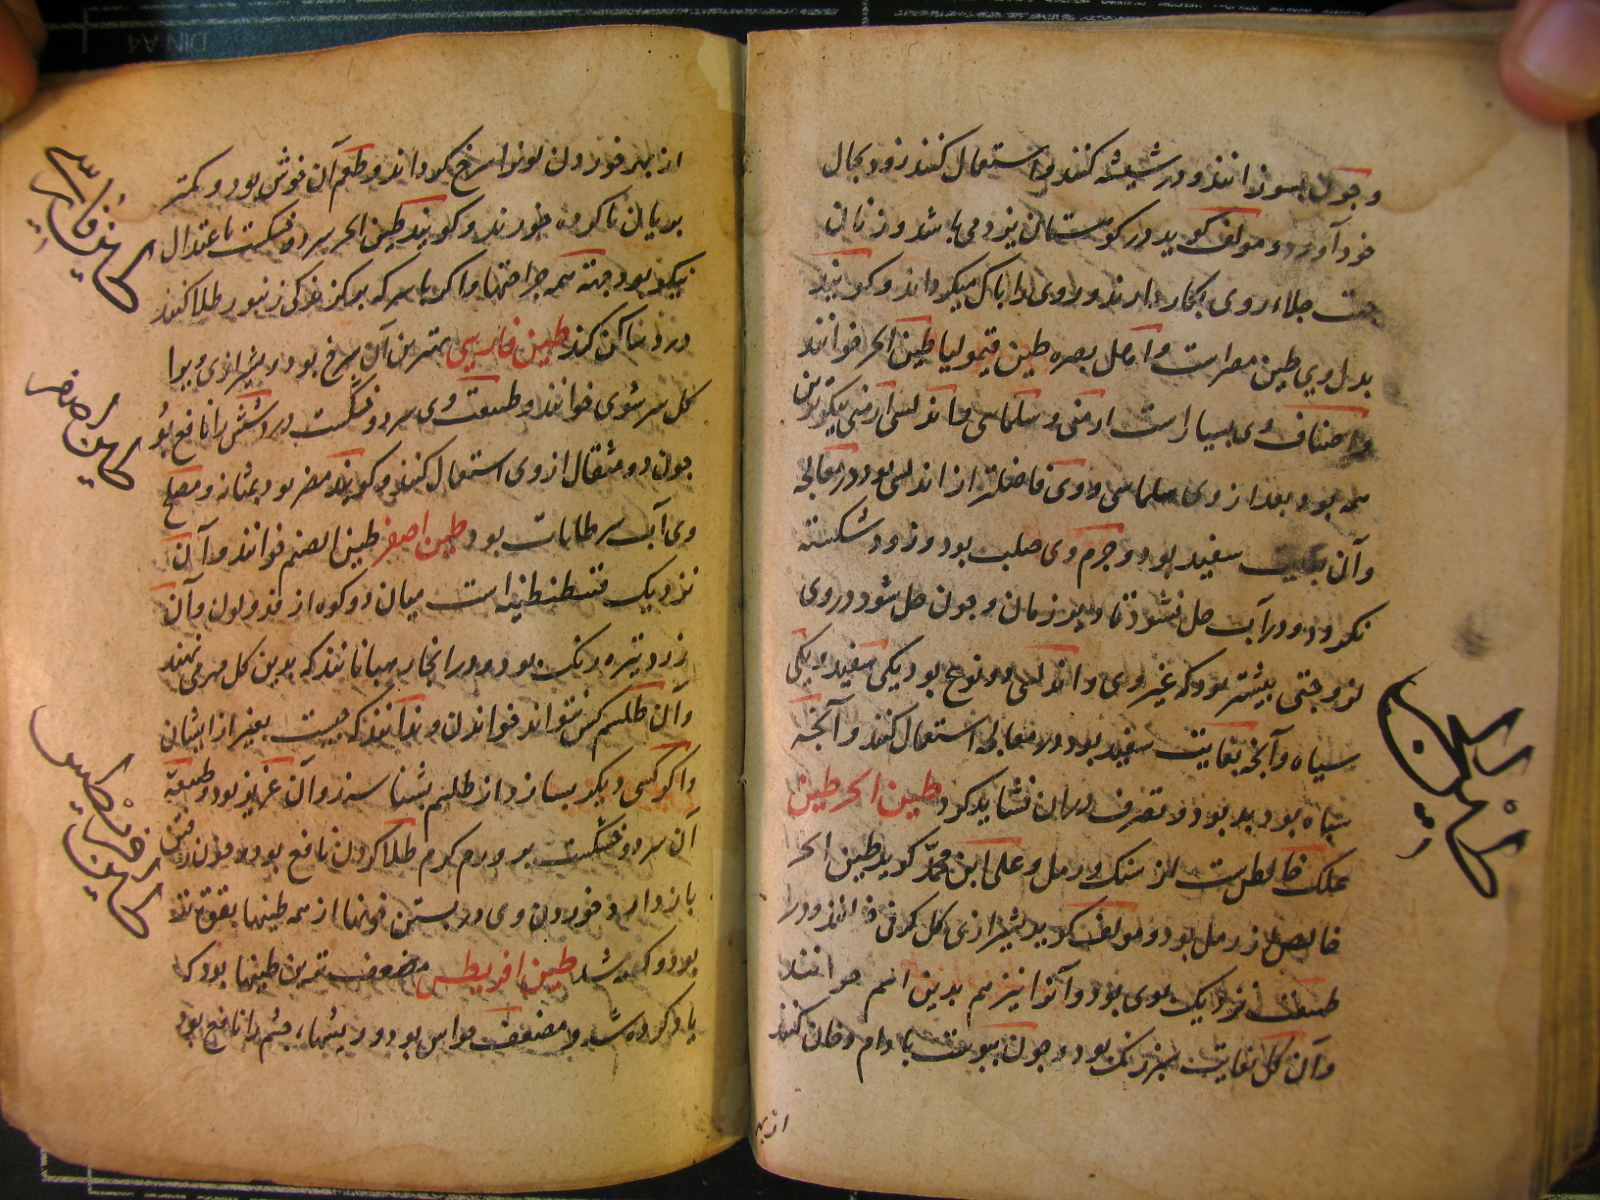 و چون بسوزانند و در شیشه کنند و استعمال کنند زود بحال
خود آورد و مولف کوید در کوهستان یزد می باشد و زنان
جهت جلاء روی بکار دارند و روی را پاک میکرداند و کویند
بدل وی طین مصر است و اهل بصره طین قیمولیا طین الحر خوانند
و اصناف وی بسیار است ارمنی و سلماسی و اندلسی ارمنی نیکوترین
همه بود و بعد از وی سلماسی و وی فاضلتر از اندلسی بود در معالجه
و آن بغایت سفید بود و جرم وی صلب بود و زود شکسته
نکردد و در آب حل نشود تا دیر زمان و چون حل شود در وی
لزوجتی بیشتر بود که غیر وی و اندلسی دو نوع بود یکی سفید و یکی
سیاه و آنچه بغایت سفید بود در معالجه استعمال کنند و آنچه
سیاه بود بد بود و تصرف در آن نشاید کرد طین الحر طین
علک خالص است از سنک و رمل و علی ابن محمد کوید طین الحر
خالص از رمل بود و مولف کوید بشیرازی کل کوئی خوانند و در
طبیعت نزدیک بوی بود و آنرا نیز هم بدین اسم خوانند
و آن کل بغایت سبز رنک بود و چون ببویند بادام دخان کنند
از بهر
از بهر خوردن لونرا سرخ کرداند و طعم آن خوش بود و کمتر
بریان ناکرده خورند و کویند طین الحر سرد و خشکست باعتدال
نیکو بود جهة همه جراحتها و اکر با سرکه بر کزندکی زنبور طلا کنند
درد ساکن کند طین فارسی بهترین آن سرخ بود و بشیرازی ویرا
کل سرشوی خوانند و طبیعت وی سرد و خشکست درد شش را نافع بود
چون دو مثقال از وی استعمال کنند و کویند مضر بود بمثانه و مصلح
وی آب سرطانات بود طین اصفر طین الصنم خوانند و آن
نزدیک قسطنطنیه است میان دو کوه از فرو لون و آن
زرد تیره رنک بود و در انجا رهبانانند که بدین کل مهر می نهند
و آن طلسم کس نتواند خواندن و ندانند که چیست بغیر از ایشان
و اکر کسی دیکر بسازد از طلسم بشناسند و آن عزیز بود و طبیعة
آن سرد و خشکست بر ورم کرم طلا کردن نافع بود و خون رفتن
باز دارد خوردن وی و در بستن خونها از همه طینها بقوة تر
بود و کفته شد طین افریطس ضعیف ترین طینها بود که
یاد کرده شد و مضعف حواس بود و ریشهاء چشم را نافع بود
طین الحر
طین فارسی
طین اصفر
طین افریطس